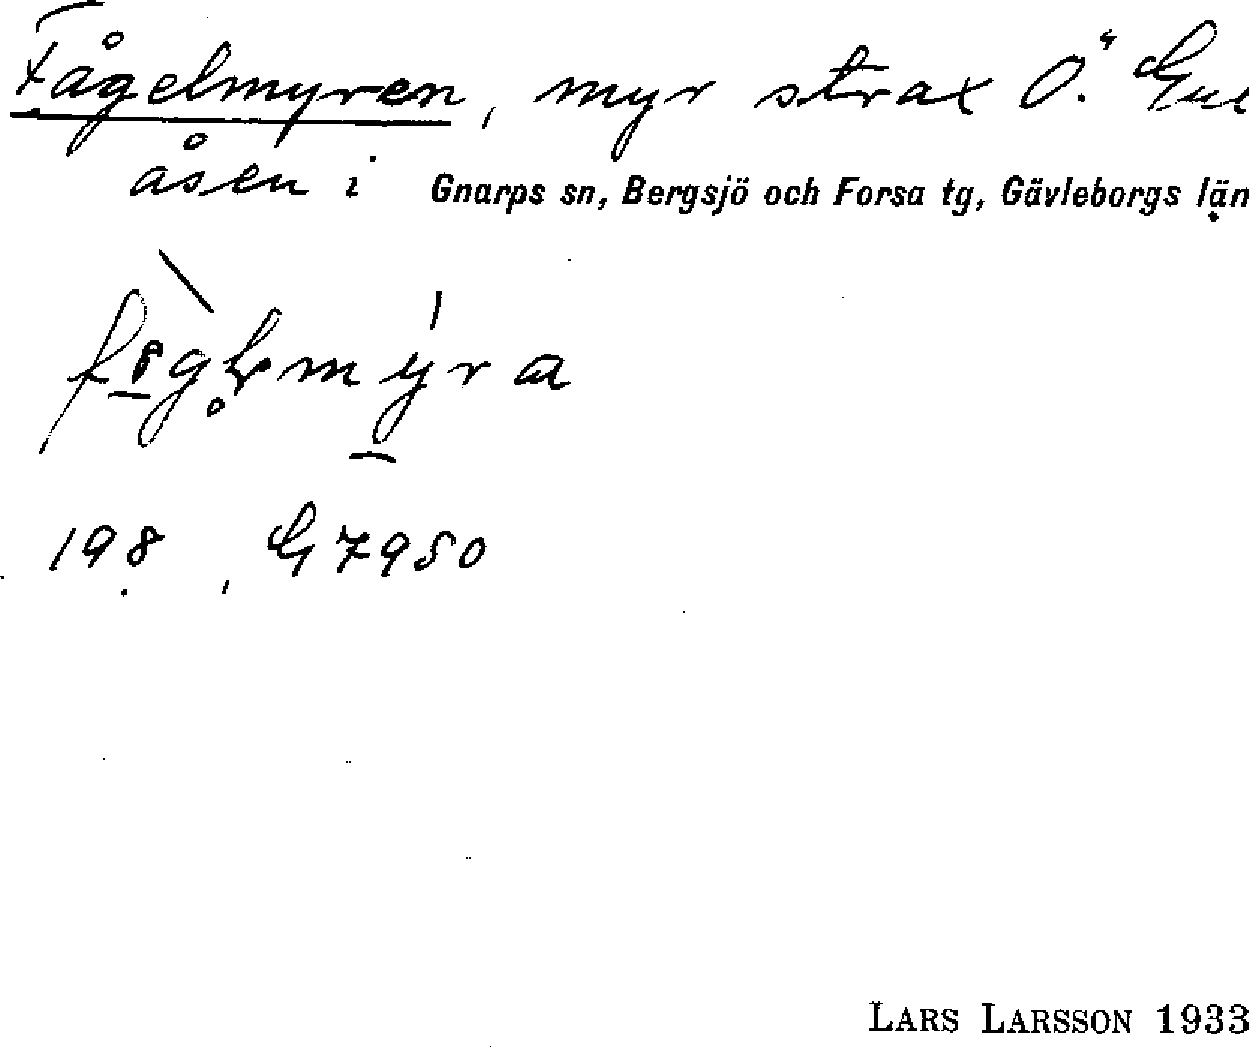 Fågelmyren, myr strax Ö.
åsen i Gnarps sn, Bergsjö och Forsa tg, Gävleborgs län
198 G7950
LARS LARSSON 1933